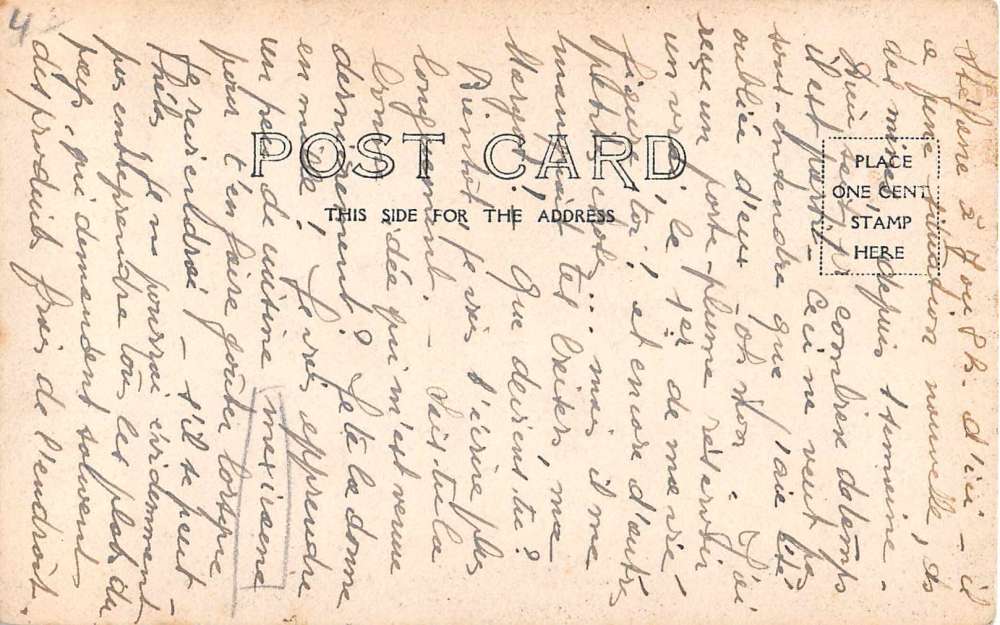 4
POST CARD
THIS SIDE FOR THE ADDRESS
PLACE
ONE CENT
STAMP
HERE
Stéfane à d'ici - il
a fine situation nouvelle, ds
des mines, depuis 1 semaine.
Dieu sait combien d temps
il est parti - Ceci ne veut pas
sous-entendre que j'aie été
oubliée d'eux - oh non. J'ai
reçu un porte-plume réservoir
un vrai, le 1er de ma vie -
figure-toi! et encore d'autres
petits ... mais il me
manquait tes baisers, ma
Margot. Que deviens tu?
Bientôt je vais t'écrire plus
longuement. - Sais tu la
bonne idée qui m'est venue
dernièrement? Je te la donne
en mille! Je vais apprendre
un peu de cuisine mexicaine
pour t'en faire goûter lorsque
je reviendrai - s'il se peut -
Je ne pourrai évidemment
pas entreprendre tous les plats du
pays, qui demandent souvent
des produits frais de l'endroit.